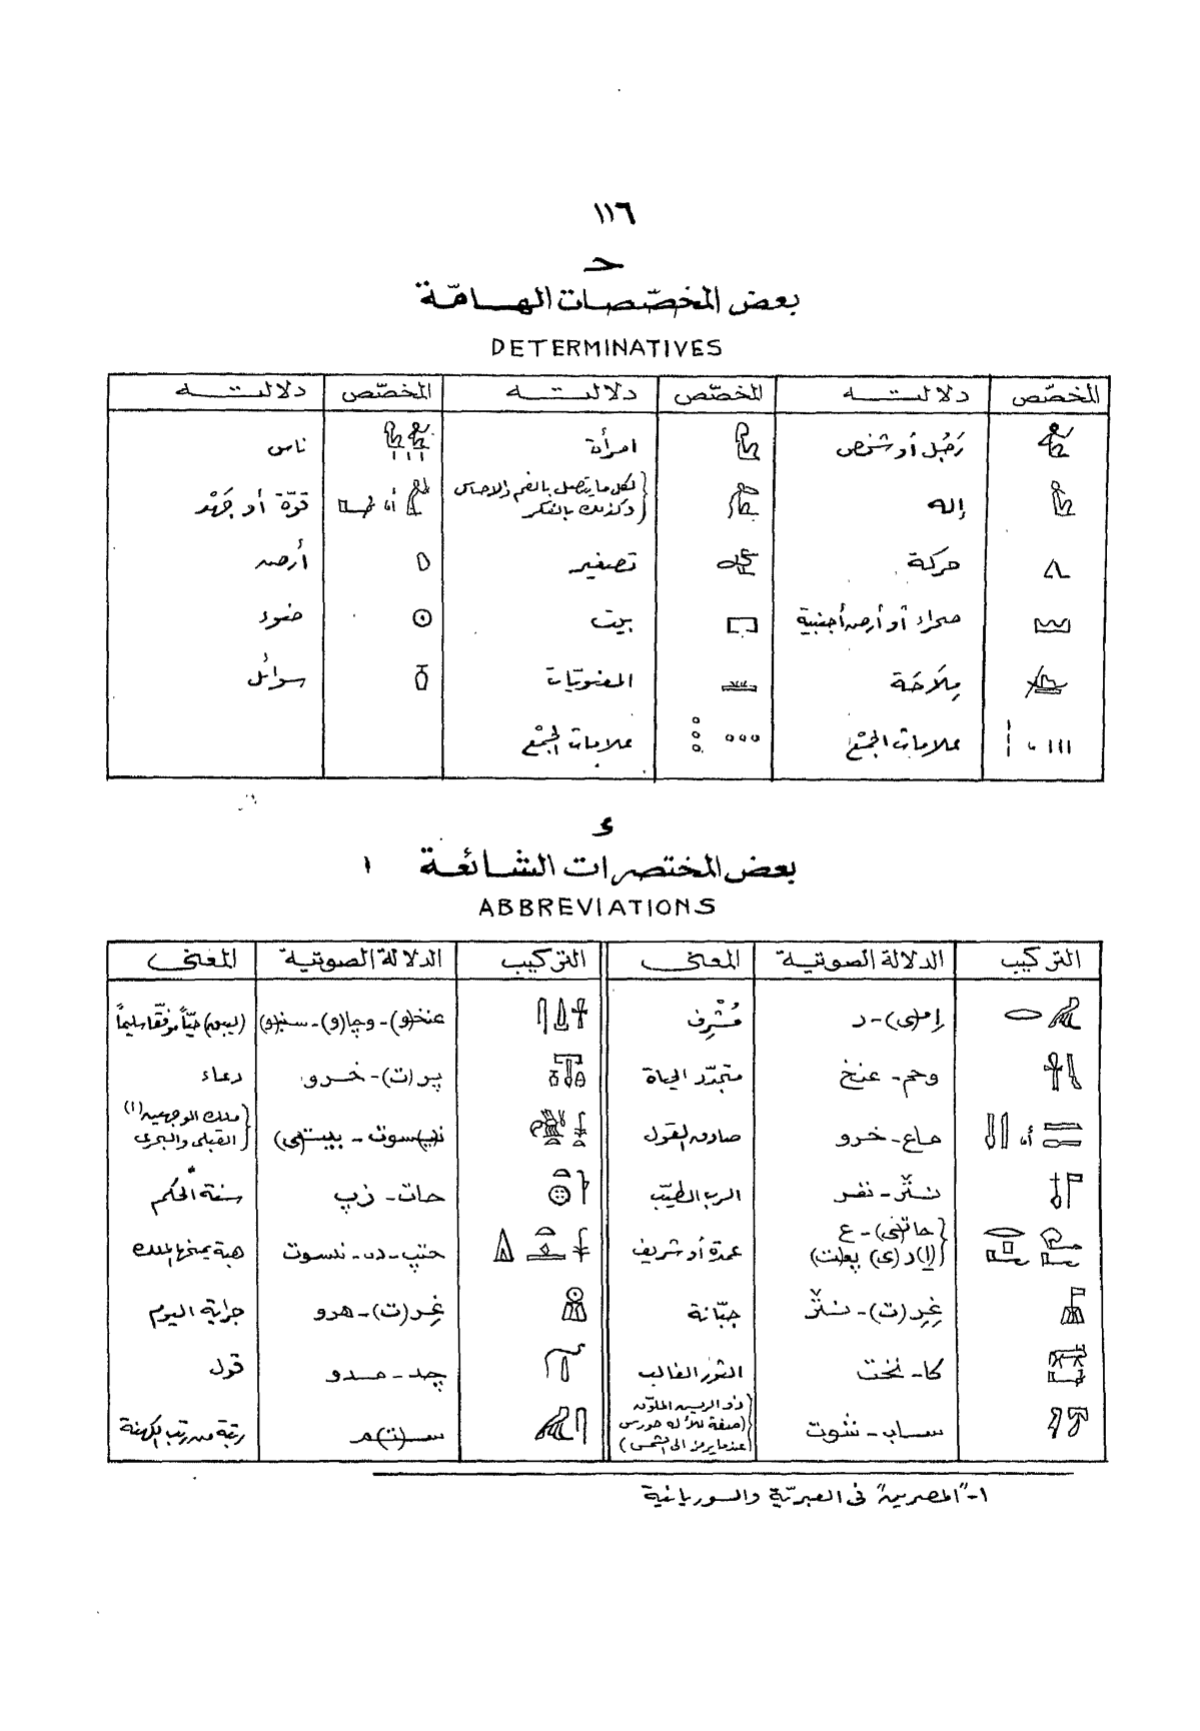 ١١٦
حـ
بعض المخصّصات الهـامّـة
DETERMINATIVES
المخصّص دلالتـــه المخصّص دلالتـــه المخصّص دلالتـــه
رَجُل أو شخص امرأة ناس
إله لكل ما يتصل بالفم والاحساس وكذلك بالفكر أو قوّة أو جَهْد
حركة تصغير أرض
صحراء أو أرض أجنبية بيت ضوء
مِلَاحَة المعنويّات سوائل
علامات الجَمْع علامات الجَمْع
ء
بعض المختصرات الشـائعـة ١
ABBREVIATIONS
التركيب الدلالة الصوتية المعنى التركيب الدلالة الصوتية المعنى
إم(ى)-ر مُشْرِف عنخ(و)-وچا(و)-سنب(و) (ليبق) حيّاً موفّقا سليماً
وحم-عنخ متجدّد الحياة پر(ت)-خـرو دعاء
أو مـاع-خرو صادق القول ن(ى)سوت-بيت(ى) ملك الوجهين(١) القبلى والبحرى
نـتر-نفـر الرب الطيّب حات-زپ سنة الحكم
حات(ى)-ع عمدة أو شريف حتپ-دى-نسوت هبة يمنحها الملك
(إ)ر(ى) پعت)
غِر(ت)-نـتر جبّانة غِر(ت)-هرو جراية اليوم
كا-نخت الثور الغالب چد-مدو قول
سـاب-شوت ذو الريش الملوّن (صفة للأله حورس عندما يرمز الى الشمس) سـ(ت)م رتبة من رتب الكهنة
١-"المصريين" فى العبريّة والسوريانية